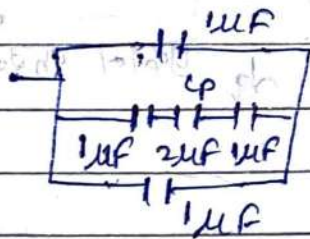 1μF
Cp
1μF 2μF 1μF
1μF